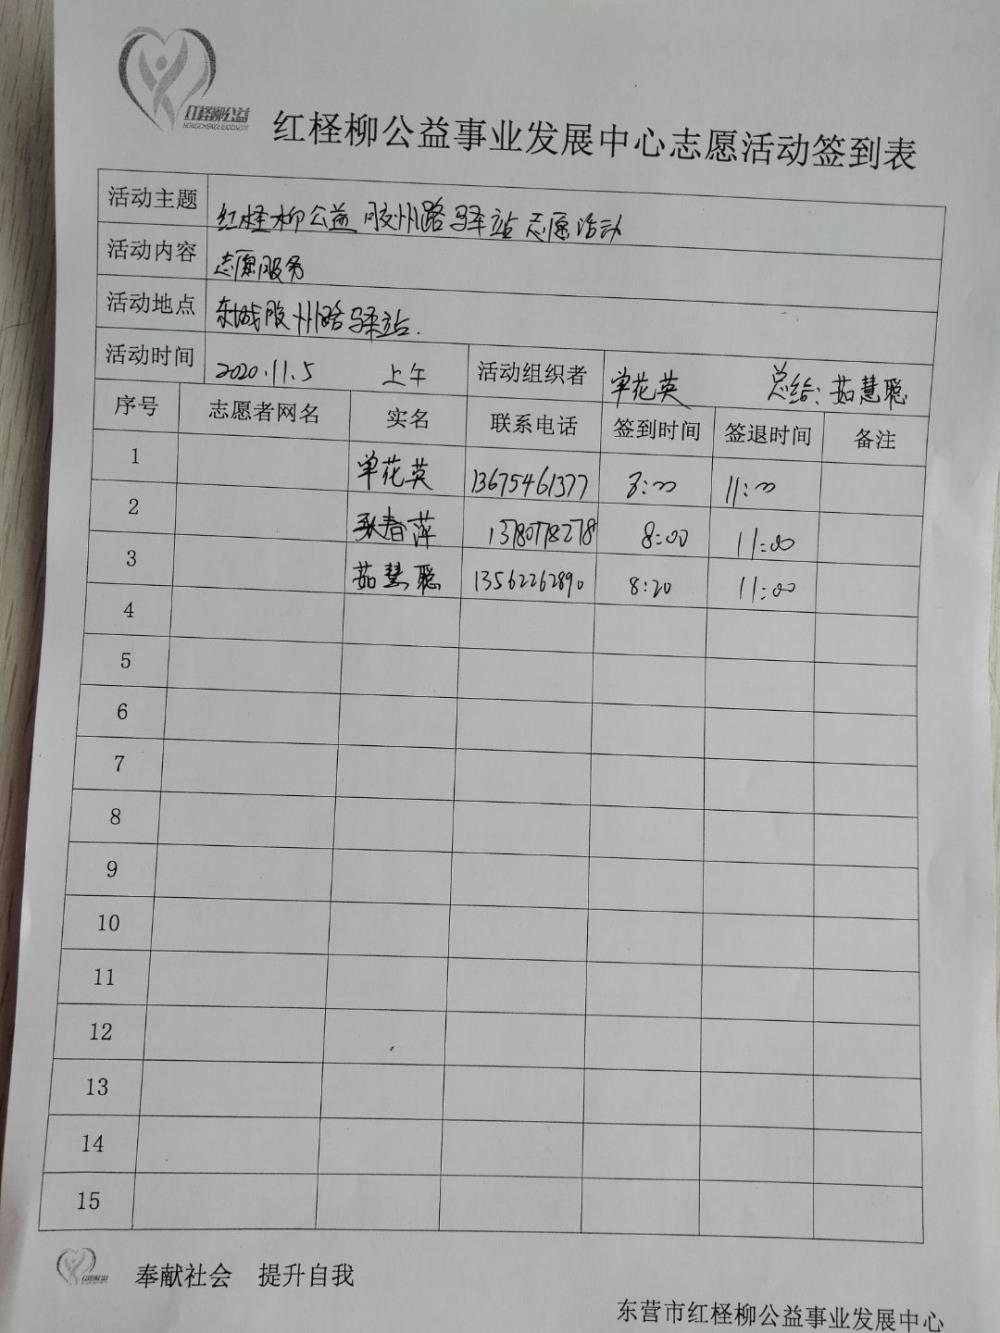 红柽柳公益
HONGCHENGLIUGONGYI
红柽柳公益事业发展中心志愿活动签到表
活动主题 红柽柳公益胶州路驿站志愿活动
活动内容 志愿服务
活动地点 东城胶州路驿站.
活动时间 2020.11.5 上午 活动组织者 单花英 总结:茹慧聪
序号 志愿者网名 实名 联系电话 签到时间 签退时间 备注
1 单花英 13675461377 8:00 11:00
2 春萍 8:00 11:00
3 茹慧聪 13562262890 8:20 11:00
4
5
6
7
8
9
10
11
12
13
14
15
奉献社会 提升自我
东营市红柽柳公益事业发展中心